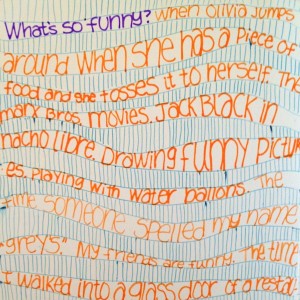 What's so funny? When Olivia jumps
around when she has a piece of
food and she tosses it to herself. The
marx Bros. movies. Jack Black in
nacho libre. Drawing funny pictur
es. Playing with water ballons. The
time someone spelled my name
"greys." My friends are funny. The time
I walked into a glass door of a resta